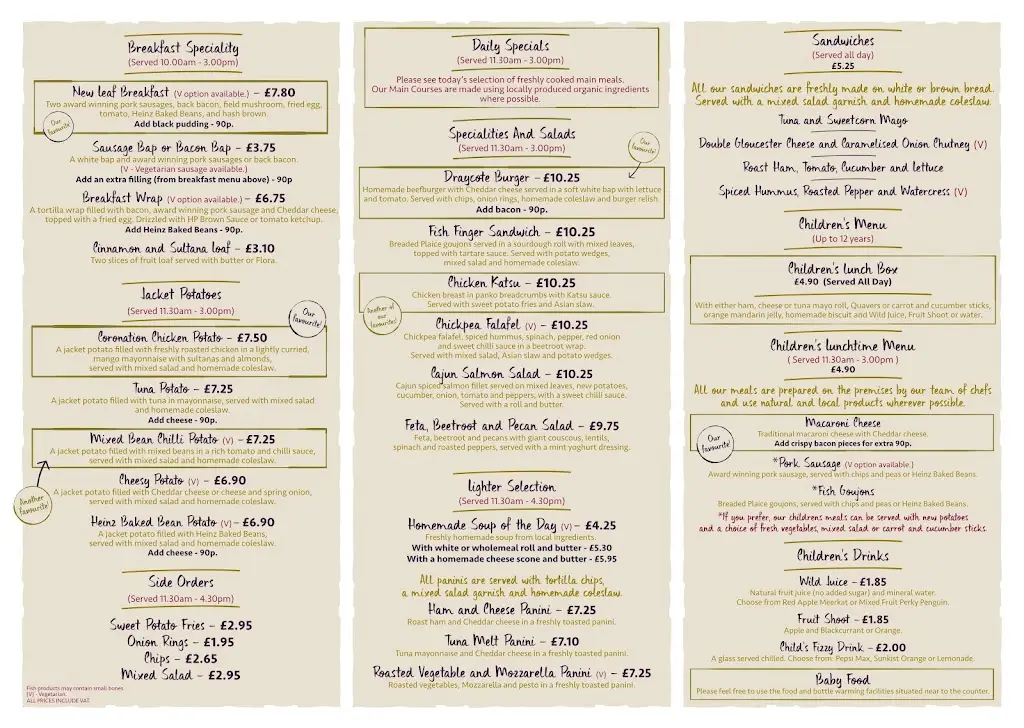 Breakfast Speciality
(Served 10.00am - 3.00pm)
New leaf Breakfast (V option available.) – £7.80
Two award winning pork sausages, back bacon, field mushroom, fried egg,
tomato, Heinz Baked Beans, and hash brown.
Add black pudding - 90p.
Our
favourite!
Sausage Bap or Bacon Bap – £3.75
A white bap and award winning pork sausages or back bacon.
(V - Vegetarian sausage available.)
Add an extra filling (from breakfast menu above) - 90p
Breakfast Wrap (V option available.) – £6.75
A tortilla wrap filled with bacon, award winning pork sausage and Cheddar cheese,
topped with a fried egg. Drizzled with HP Brown Sauce or tomato ketchup.
Add Heinz Baked Beans - 90p.
Cinnamon and Sultana loaf – £3.10
Two slices of fruit loaf served with butter or Flora.
Jacket Potatoes
(Served 11.30am - 3.00pm)
Our
favourite!
Coronation Chicken Potato – £7.50
A jacket potato filled with freshly roasted chicken in a lightly curried,
mango mayonnaise with sultanas and almonds,
served with mixed salad and homemade coleslaw.
Tuna Potato – £7.25
A jacket potato filled with tuna in mayonnaise, served with mixed salad
and homemade coleslaw.
Add cheese - 90p.
Mixed Bean Chilli Potato (V) – £7.25
A jacket potato filled with mixed beans in a rich tomato and chilli sauce,
served with mixed salad and homemade coleslaw.
Another
favourite!
Cheesy Potato (V) – £6.90
A jacket potato filled with Cheddar cheese or cheese and spring onion,
served with mixed salad and homemade coleslaw.
Heinz Baked Bean Potato (V) – £6.90
A jacket potato filled with Heinz Baked Beans,
served with mixed salad and homemade coleslaw.
Add cheese - 90p.
Side Orders
(Served 11.30am - 4.30pm)
Sweet Potato Fries – £2.95
Onion Rings – £1.95
Chips – £2.65
Mixed Salad – £2.95
Fish products may contain small bones
(V) - Vegetarian.
ALL PRICES INCLUDE VAT.
Daily Specials
(Served 11.30am - 3.00pm)
Please see today's selection of freshly cooked main meals.
Our Main Courses are made using locally produced organic ingredients
where possible.
Specialities And Salads
(Served 11.30am - 3.00pm)
Our
favourite!
Draycote Burger – £10.25
Homemade beefburger with Cheddar cheese served in a soft white bap with lettuce
and tomato. Served with chips, onion rings, homemade coleslaw and burger relish.
Add bacon - 90p.
Fish Finger Sandwich – £10.25
Breaded Plaice goujons served in a sourdough roll with mixed leaves,
topped with tartare sauce. Served with potato wedges,
mixed salad and homemade coleslaw.
Chicken Katsu – £10.25
Chicken breast in panko breadcrumbs with Katsu sauce.
Served with sweet potato fries and Asian slaw.
Another of
our
favourite!
Chickpea Falafel (V) – £10.25
Chickpea falafel, spiced hummus, spinach, pepper, red onion
and sweet chilli sauce in a beetroot wrap.
Served with mixed salad, Asian slaw and potato wedges.
Cajun Salmon Salad – £10.25
Cajun spiced salmon fillet served on mixed leaves, new potatoes,
cucumber, onion, tomato and peppers, with a sweet chilli sauce.
Served with a roll and butter.
Feta, Beetroot and Pecan Salad – £9.75
Feta, beetroot and pecans with giant couscous, lentils,
spinach and roasted peppers, served with a mint yoghurt dressing.
lighter Selection
(Served 11.30am - 4.30pm)
Homemade Soup of the Day (V) – £4.25
Freshly homemade soup from local ingredients.
With white or wholemeal roll and butter - £5.30
With a homemade cheese scone and butter - £5.95
All paninis are served with tortilla chips,
a mixed salad garnish and homemade coleslaw.
Ham and Cheese Panini – £7.25
Roast ham and Cheddar cheese in a freshly toasted panini.
Tuna Melt Panini – £7.10
Tuna mayonnaise and Cheddar cheese in a freshly toasted panini.
Roasted Vegetable and Mozzarella Panini (V) – £7.25
Roasted vegetables, Mozzarella and pesto in a freshly toasted panini.
Sandwiches
(Served all day)
£5.25
All our sandwiches are freshly made on white or brown bread.
Served with a mixed salad garnish and homemade coleslaw.
Tuna and Sweetcorn Mayo
Double Gloucester Cheese and Caramelised Onion Chutney (V)
Roast Ham, Tomato, Cucumber and lettuce
Spiced Hummus, Roasted Pepper and Watercress (V)
Children's Menu
(Up to 12 years)
Children's lunch Box
£4.90 (Served All Day)
With either ham, cheese or tuna mayo roll, Quavers or carrot and cucumber sticks,
orange mandarin jelly, homemade biscuit and Wild Juice, Fruit Shoot or water.
Children's lunchtime Menu
( Served 11.30am - 3.00pm )
£4.90
All our meals are prepared on the premises by our team of chefs
and use natural and local products wherever possible.
Macaroni Cheese
Traditional macaroni cheese with Cheddar cheese.
Add crispy bacon pieces for extra 90p.
Our
favourite!
*Pork Sausage (V option available.)
Award winning pork sausage, served with chips and peas or Heinz Baked Beans.
*Fish Goujons
Breaded Plaice goujons, served with chips and peas or Heinz Baked Beans.
*If you prefer, our childrens meals can be served with new potatoes
and a choice of fresh vegetables, mixed salad or carrot and cucumber sticks.
Children's Drinks
Wild Juice – £1.85
Natural fruit juice (no added sugar) and mineral water.
Choose from Red Apple Meerkat or Mixed Fruit Perky Penguin.
Fruit Shoot – £1.85
Apple and Blackcurrant or Orange.
Child's Fizzy Drink – £2.00
A glass served chilled. Choose from: Pepsi Max, Sunkist Orange or Lemonade.
Baby Food
Please feel free to use the food and bottle warming facilities situated near to the counter.